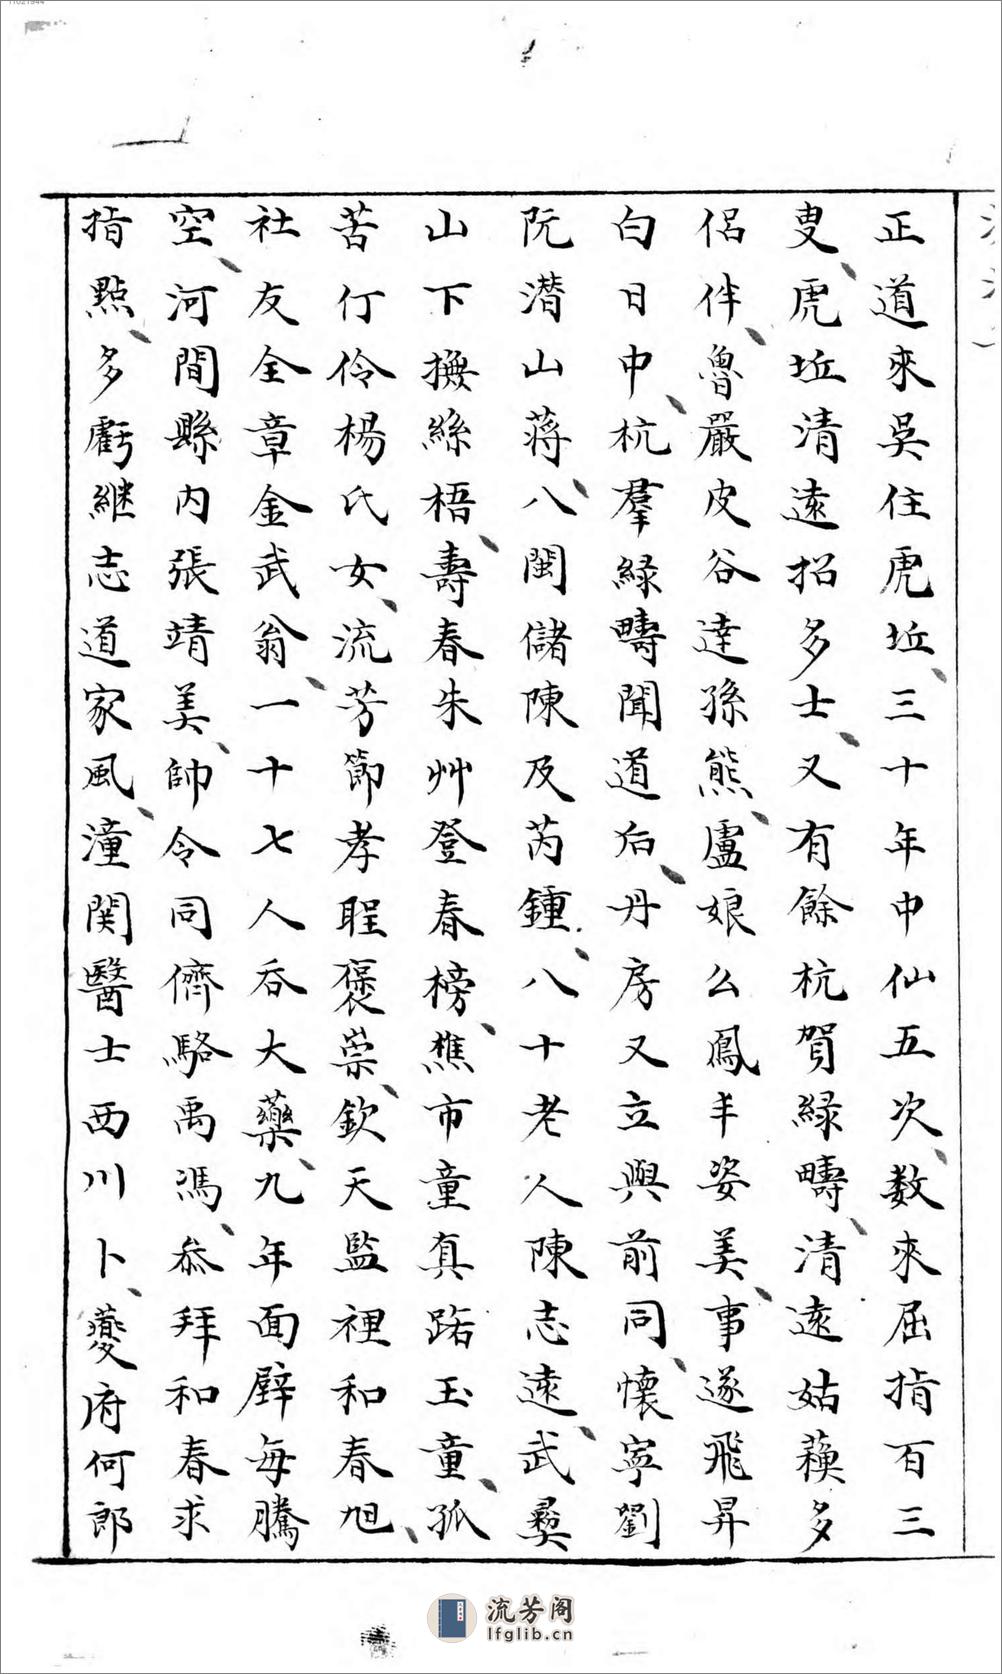 正道來吳住虎坵、三十年中仙五次、数來屈指百三
叟、虎坵清遠招多士、又有餘杭賀緑疇、清遠姑蘓多
侣伴、魯嚴皮谷逹孫熊、盧娘么鳳丰姿美、事遂飛昇
白日中、杭羣緑疇聞道后、丹房又立與前同、懷寜劉
阮潜山蒋、八閩儲陳及芮鍾、八十老人陳志遠、武彛
山下撫絲梧、壽春朱艸登春榜、樵市童真跖玉童、孤
苦仃伶楊氏女、流芳節孝聖褒崇、欽天監裡和春旭、
社友全章金武翁、一十七人吞大藥、九年面壁每騰
空、河間縣内張靖美、帥令同儕駱禹馮、叅拜和春求
指點、多虧継志道家風、潼関醫士西川卜、夔府何郎
流芳阁
lfglib.cn